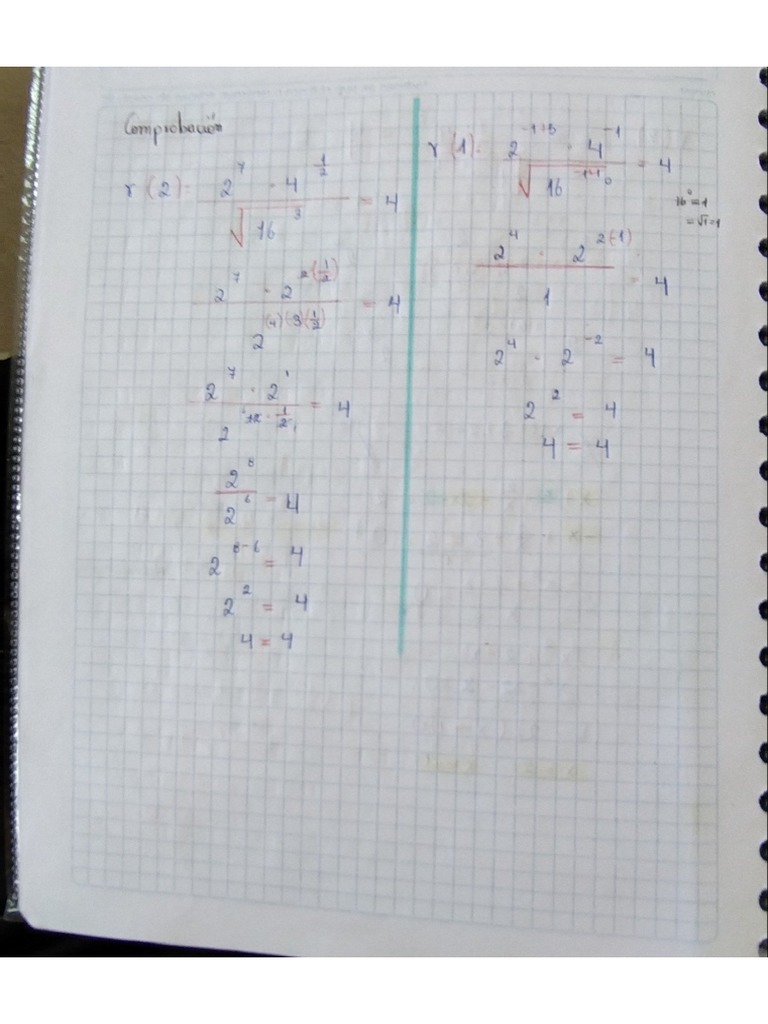 Comprobación
r (2) = 2^7 · 4^(1/2) / √16^3 = 4
2^7 · 2^(2(1/2)) / 2^((4)(3)(1/2)) = 4
2^7 · 2^1 / 2^(12 · 1/2) = 4
2^8 / 2^6 = 4
2^(8-6) = 4
2^2 = 4
4 = 4
r (1) = 2^4 · 2^(2(-1)) / 1 = 4
16^0 = 1
= √1 = 1
2^4 · 2^-2 = 4
2^2 = 4
4 = 4